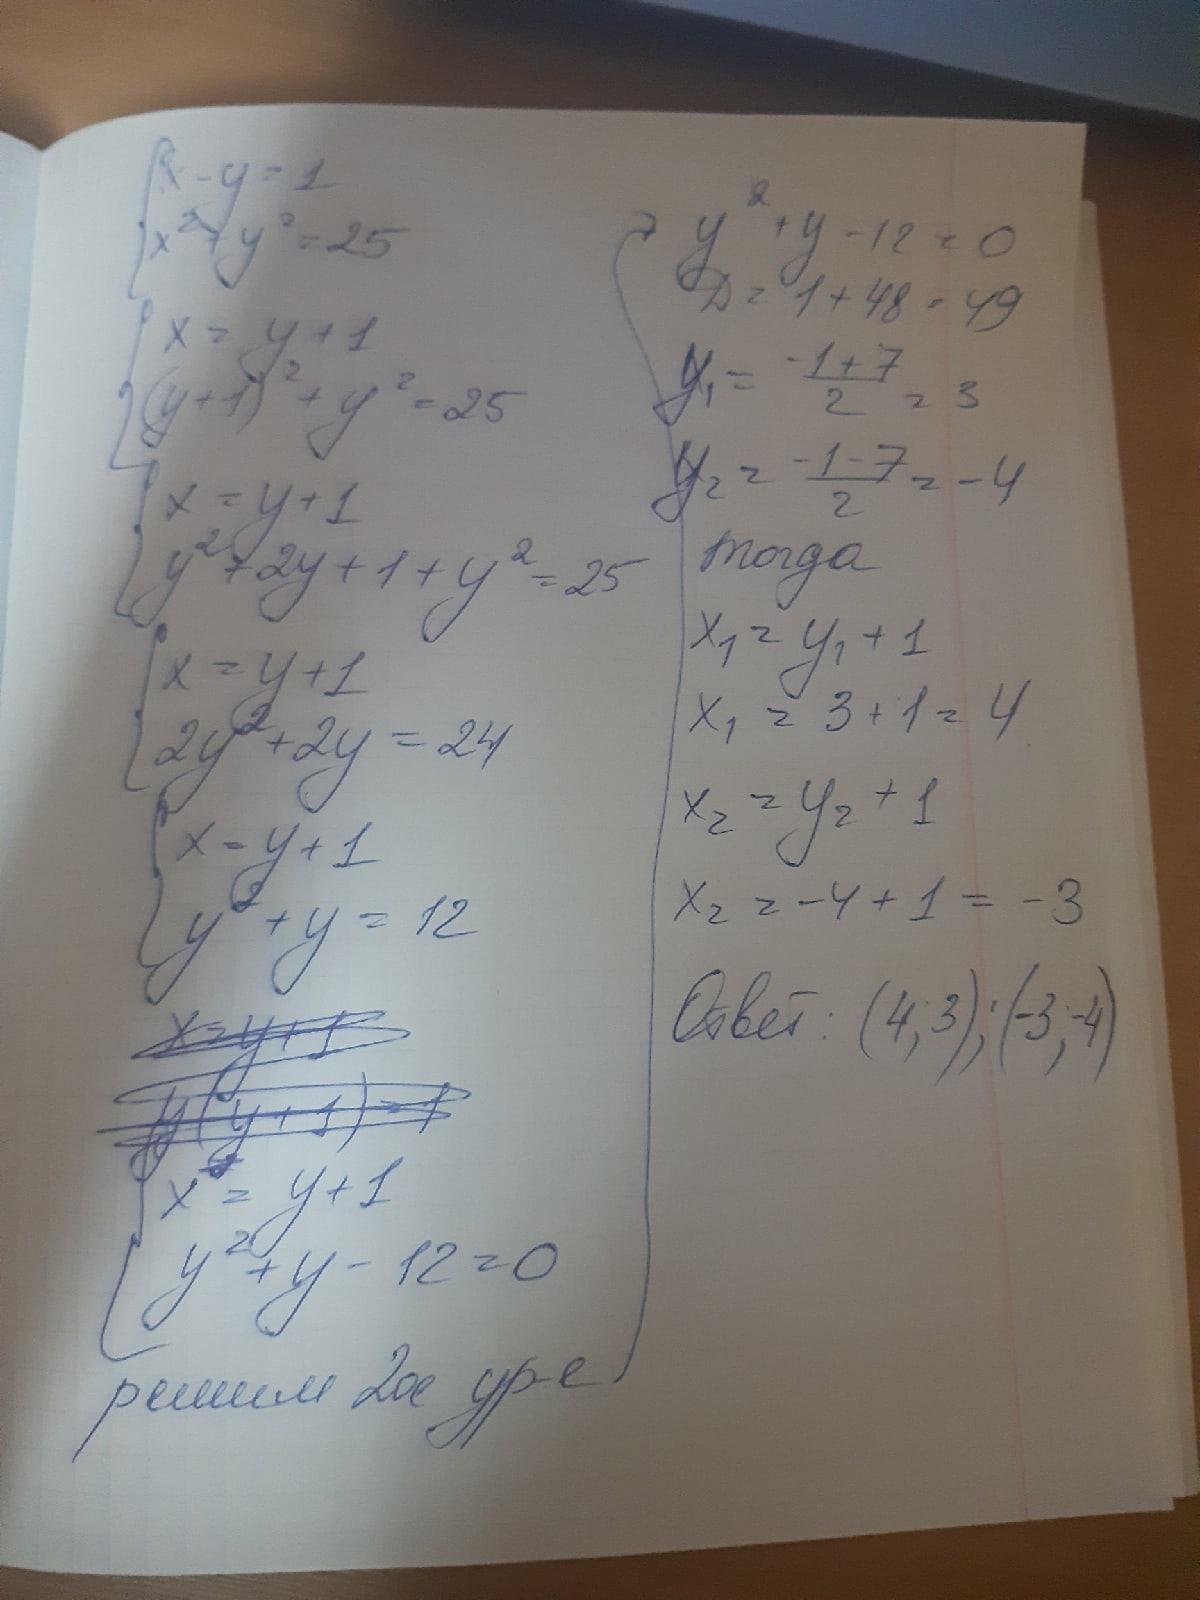 x - y = 1
x² + y² = 25
x = y + 1
(y + 1)² + y² = 25
x = y + 1
y² + 2y + 1 + y² = 25
x = y + 1
2y² + 2y = 24
x = y + 1
y² + y = 12
x = y + 1
y(y + 1) = 1
x = y + 1
y² + y - 12 = 0
решим 2ое ур-е
y² + y - 12 = 0
D = 1 + 48 = 49
y₁ = (-1 + 7)/2 = 3
y₂ = (-1 - 7)/2 = -4
тогда
x₁ = y₁ + 1
x₁ = 3 + 1 = 4
x₂ = y₂ + 1
x₂ = -4 + 1 = -3
Ответ: (4; 3); (-3; -4)